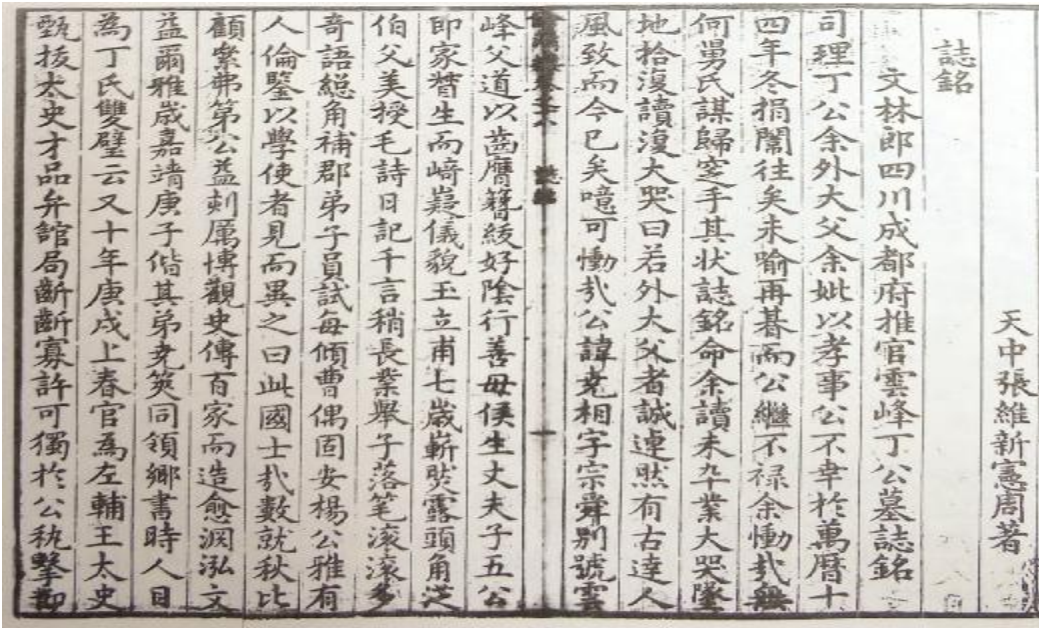 天中張維新憲周著
誌銘
文林郎四川成都府推官雲峰丁公墓誌銘
司理丁公余外大父余妣以孝事公不幸於萬曆十
四年冬捐閫往矣未喻再朞而公繼不禄余慟哉無
何舅氏謀歸窆手其状誌銘命余讀未卒業大哭墜
地拾復讀復大哭曰若外大父者誠逹然有古逹人
風致而今已矣噫可慟哉公諱尭相字宗舜别號雲
峰父道以齒膺簪紱好陰行善母侯生丈夫子五公
即家督生而﨑嶷儀貌玉立甫七歲嶄然露頭角从
伯父美授毛詩日記千言稍長業舉子落笔滚滚多
奇語総角補郡弟子員試每傾曹偶固安楊公雅有
人倫鑒以學使者見而異之曰此國士哉數就秋比
顧累弗第公益剌厲博觀史傳百家而造愈淵泓文
益爾雅歲嘉靖庚子偕其弟尭筴同領鄉書時人目
為丁氏雙璧云又十年庚戌上春官為左輔王太史
甄抜太史才品弁舘局斷斷寡許可獨於公秇擊節